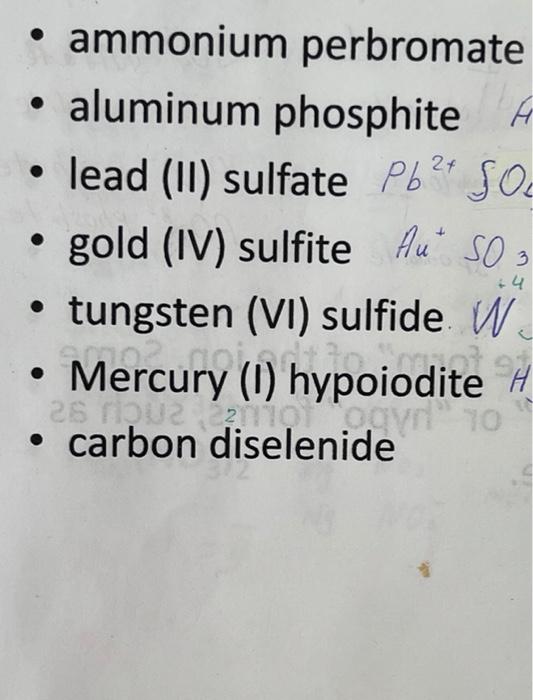 • ammonium perbromate
• aluminum phosphite A
• lead (II) sulfate Pb²⁺ SO
• gold (IV) sulfite Au⁺ SO₃
+4
• tungsten (VI) sulfide. W
• Mercury (I) hypoiodite H
2
• carbon diselenide